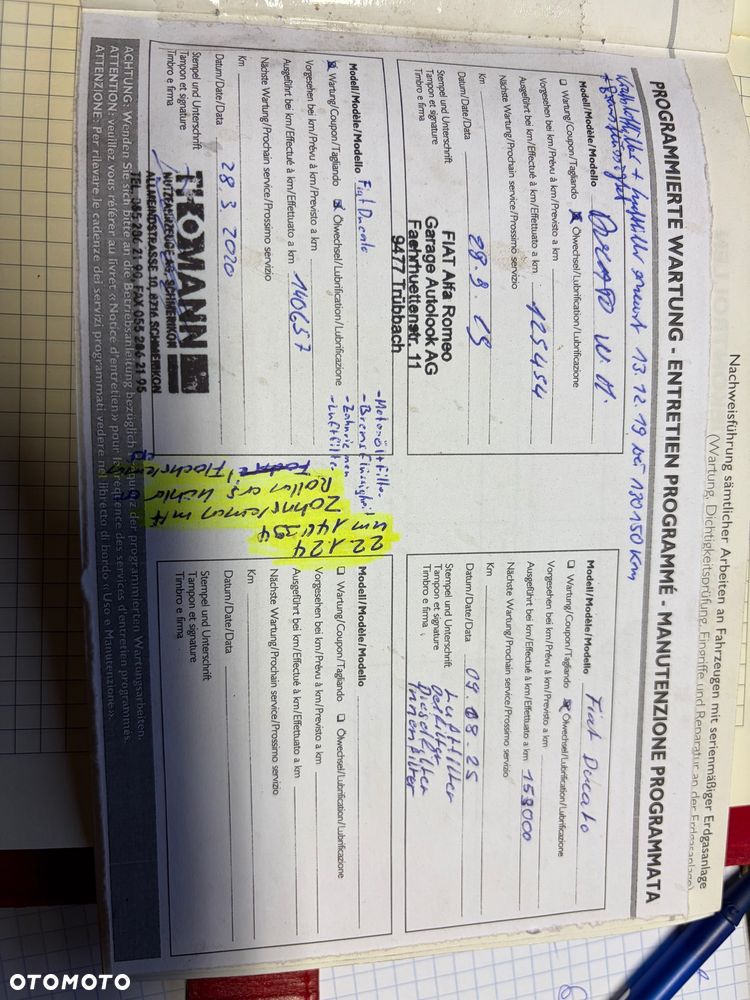 Nachweisführung sämtlicher Arbeiten an Fahrzeugen mit serienmäßiger Erdgasanlage
(Wartung, Dichtigkeitsprüfung, Eingriffe und Reparatur an der Erdgasanlage)
PROGRAMMIERTE WARTUNG - ENTRETIEN PROGRAMMÉ - MANUTENZIONE PROGRAMMATA
13.12.19 bei 130150 Km
Modell/Modèle/Modello DUCATO
Wartung/Coupon/Tagliando Ölwechsel/Lubrification/Lubrificazione
Vorgesehen bei km/Prévu à km/Previsto a km
Ausgeführt bei km/Effectué à km/Effettuato a km 125454
Nächste Wartung/Prochain service/Prossimo servizio
Km
Datum/Date/Data
Stempel und Unterschrift
Tampon et signature
Timbro e firma
FIAT Alfa Romeo
Garage Autolook AG
Faehrhuettenstr. 11
9477 Trübbach
Modell/Modèle/Modello Fiat Ducato
Wartung/Coupon/Tagliando Ölwechsel/Lubrification/Lubrificazione
Vorgesehen bei km/Prévu à km/Previsto a km
Ausgeführt bei km/Effectué à km/Effettuato a km 158000
Nächste Wartung/Prochain service/Prossimo servizio
Km
Datum/Date/Data 09.08.25
Stempel und Unterschrift
Tampon et signature
Timbro e firma
Luftfilter
Oelfilter
Dieselfilter
Innenfilter
Modell/Modèle/Modello Fiat Ducato
Wartung/Coupon/Tagliando Ölwechsel/Lubrification/Lubrificazione
Vorgesehen bei km/Prévu à km/Previsto a km
Ausgeführt bei km/Effectué à km/Effettuato a km 140657
Nächste Wartung/Prochain service/Prossimo servizio
Km
Datum/Date/Data 28.3.2020
Stempel und Unterschrift
Tampon et signature
Timbro e firma
- Bremsflüssigkeit
- Zahnriemen
- Luftfilter
NUTZFAHRZEUGE AG, SCHMERIKON
ALLMEINDSTRASSE 10, 8716 SCHMERIKON
TEL. 055 206 21 90, FAX 055 206 21 95
22.1.24
Zahnriemen mit
Modell/Modèle/Modello
Wartung/Coupon/Tagliando Ölwechsel/Lubrification/Lubrificazione
Vorgesehen bei km/Prévu à km/Previsto a km
Ausgeführt bei km/Effectué à km/Effettuato a km
Nächste Wartung/Prochain service/Prossimo servizio
Km
Datum/Date/Data
Stempel und Unterschrift
Tampon et signature
Timbro e firma
ACHTUNG: Wenden Sie sich bitte an die Betriebsanleitung bezüglich der Frequenz der programmierten Wartungsarbeiten.
ATTENTION: veuillez vous référer au livret «Notice d'entretien» pour la fréquence des services d'entretien programmés.
ATTENZIONE: Per rilevare le cadenze dei servizi programmati vedere nel libretto di bordo «Uso e Manutenzione».
OTOMOTO